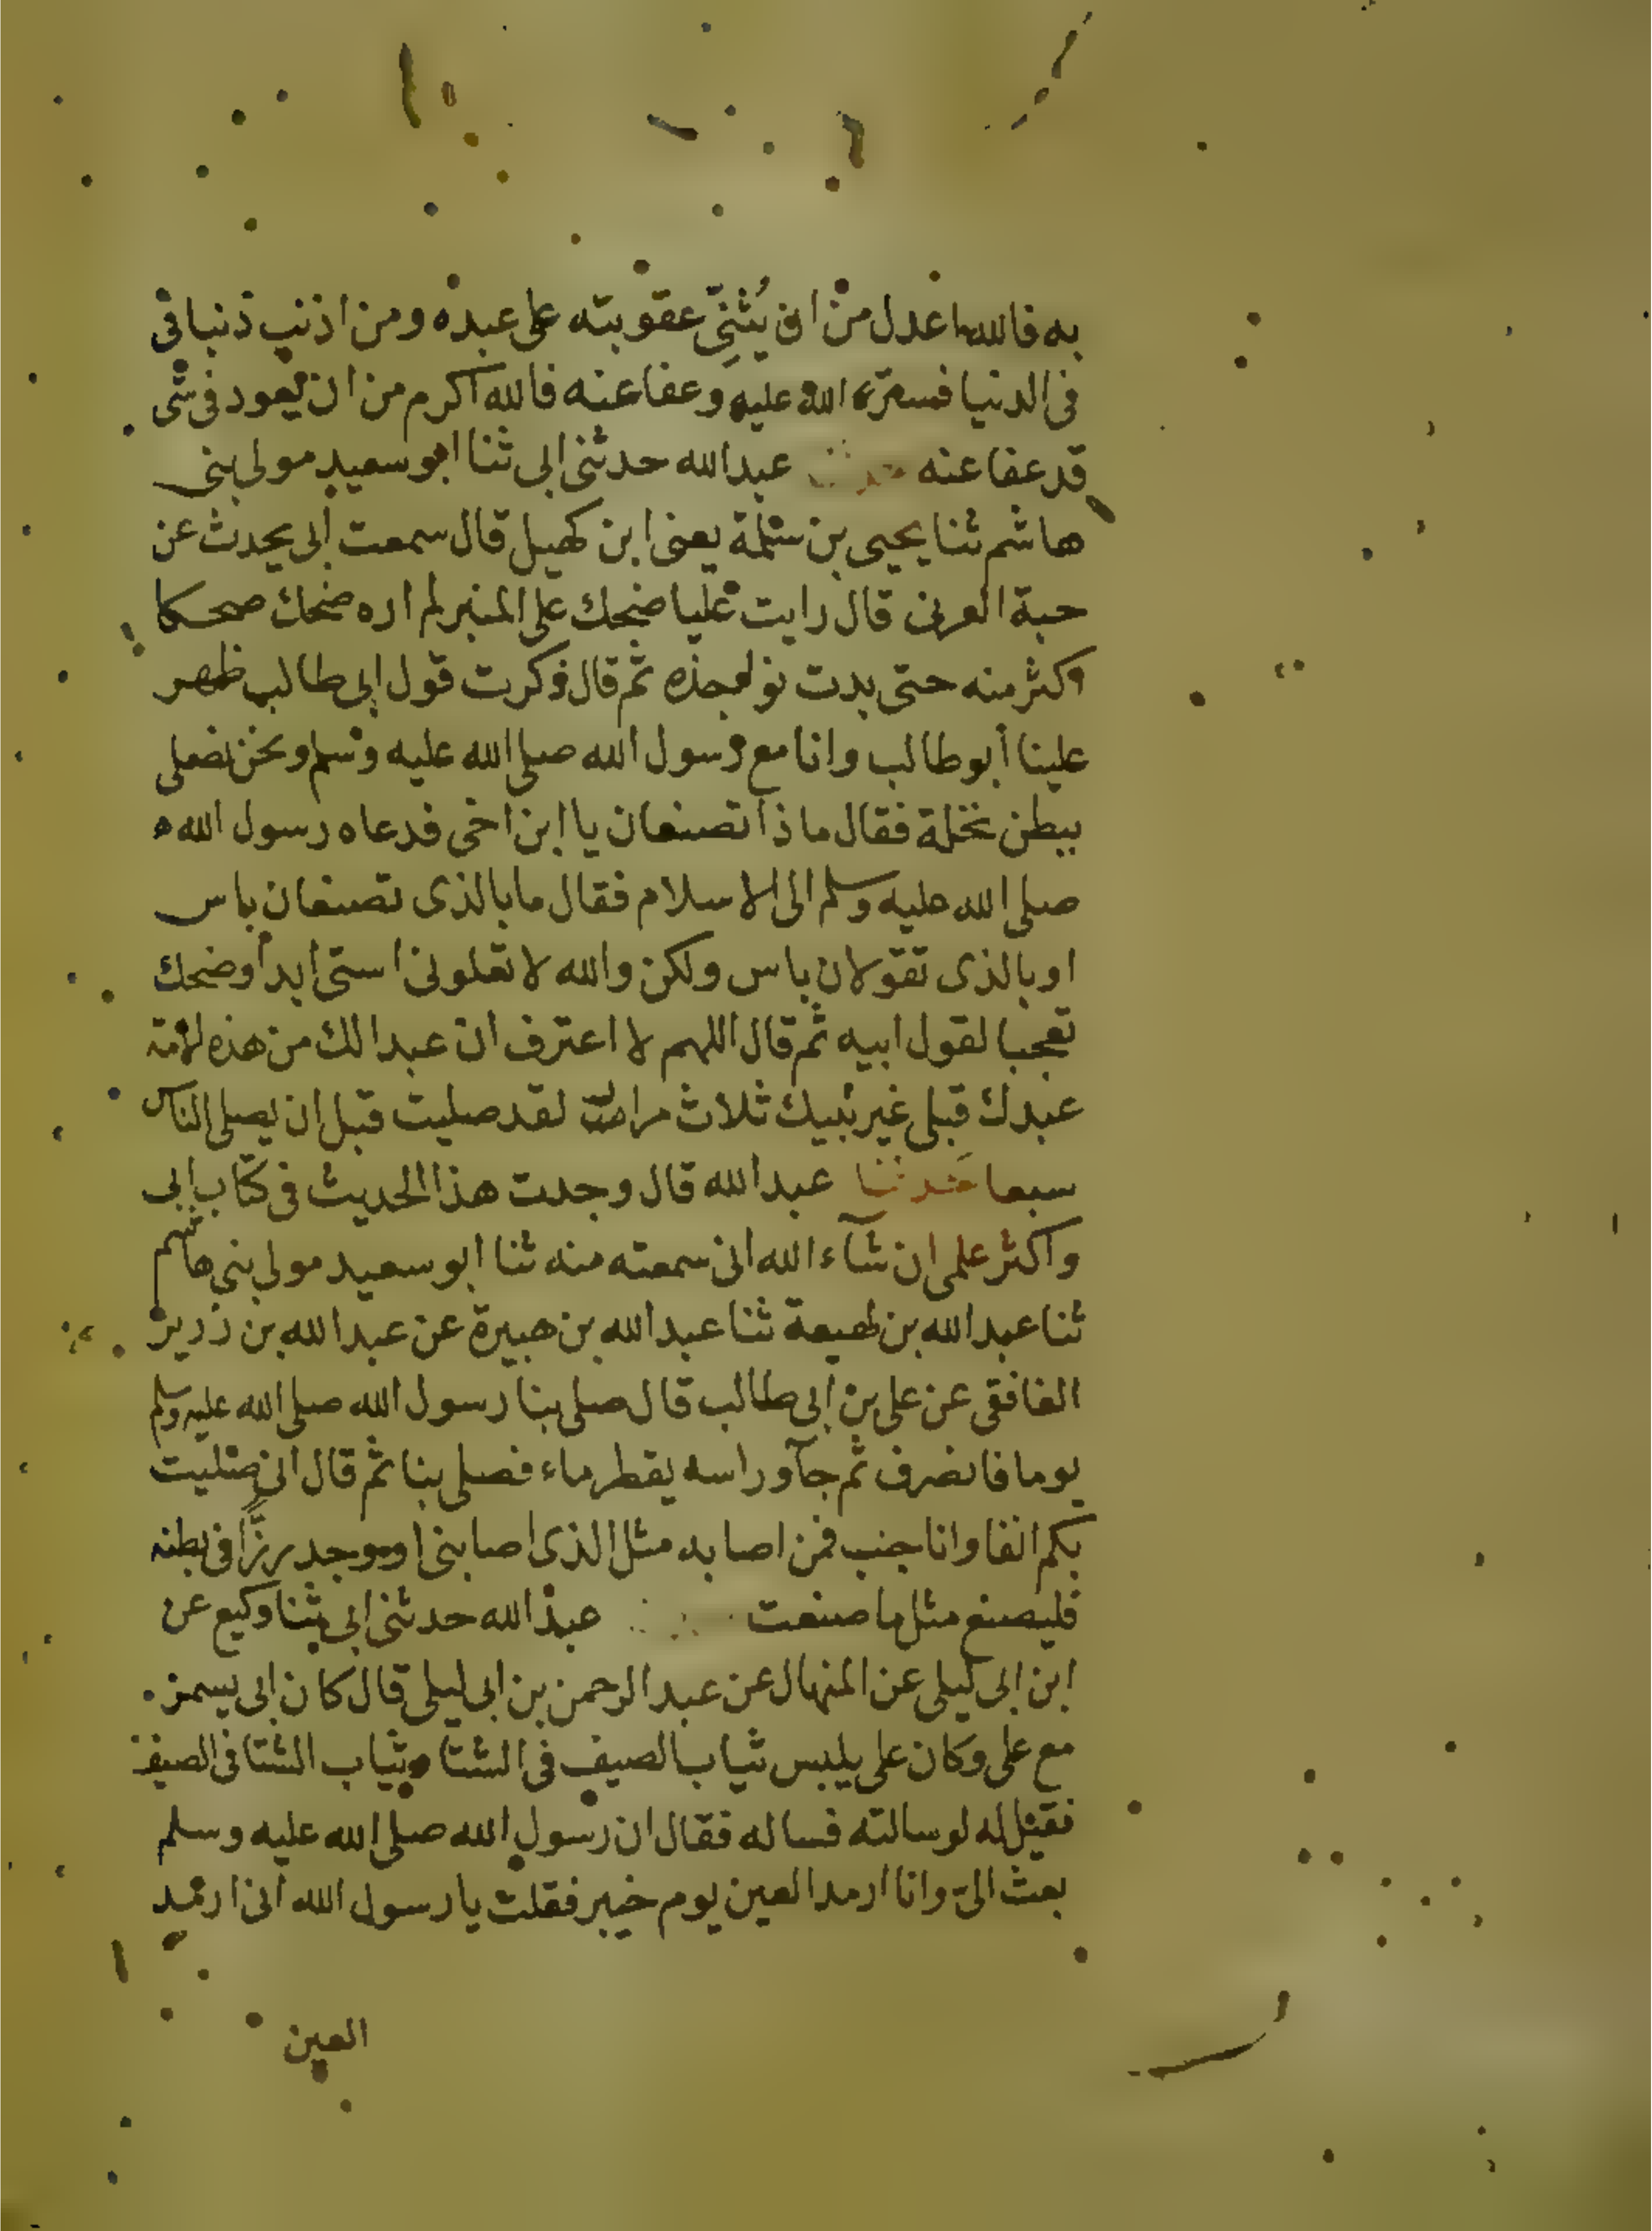 به فالله اعدل من ان يُثَنِّى عقوبته على عبده ومن اذنب ذنبا فى
فى الدنيا فستره الله عليه وعفا عنه فالله اكرم من ان يعود فى شى
قد عفا عنه حدثنا عبدالله حدثنى ابى ثنا ابو سعيد مولى بنى
هاشم ثنا يحيى بن سلمة يعنى ابن كهيل قال سمعت ابى يحدث عن
حبة العرنى قال رايت عليا ضحك على المنبر لم اره ضحك ضحكا
اكثر منه حتى بدت نواجذه ثم قال ذكرت قول ابى طالب ظهر
علينا أبو طالب وانا مع رسول الله صلى الله عليه وسلم ونحن نصلى
ببطن نخلة فقال ماذا تصنعان يا ابن اخى فدعاه رسول الله
صلى الله عليه وسلم الى الاسلام فقال ما بالذى تصنعان باس
او بالذى تقولان باس ولكن والله لا تعلونى استى ابدا وضحك
تعجبا لقول ابيه ثم قال اللهم لا اعترف ان عبدا لك من هذه الامة
عبدك قبلى غير نبيك ثلاث مرات لقد صليت قبل ان يصلى الناس
سبعا حدثنا عبدالله قال وجدت هذا الحديث فى كتاب ابى
واكثر علمى ان شآء الله انى سمعته منه ثنا ابو سعيد مولى بنى هاشم
ثنا عبدالله بن لهيعة ثنا عبدالله بن هبيرة عن عبدالله بن زرير
الغافقى عن على بن ابى طالب قال صلى بنا رسول الله صلى الله عليه وسلم
يوما فانصرف ثم جآ وراسه يقطر ماء فصلى بنا ثم قال انى صليت
بكم انفا وانا جنب فمن اصابه مثل الذى اصابنى او وجد رزًّا فى بطنه
فليصنع مثل ما صنعت عبدالله حدثنى ابى ثنا وكيع عن
ابن ابى ليلى عن المنهال عن عبد الرحمن بن ابى ليلى قال كان ابى يسمر
مع على وكان على يلبس ثياب الصيف فى الشتا وثياب الشتا فى الصيف
فقيل له لو سالته فساله فقال ان رسول الله صلى الله عليه وسلم
بعث الىّ وانا ارمد العين يوم خيبر فقلت يا رسول الله انى ارمد
العين